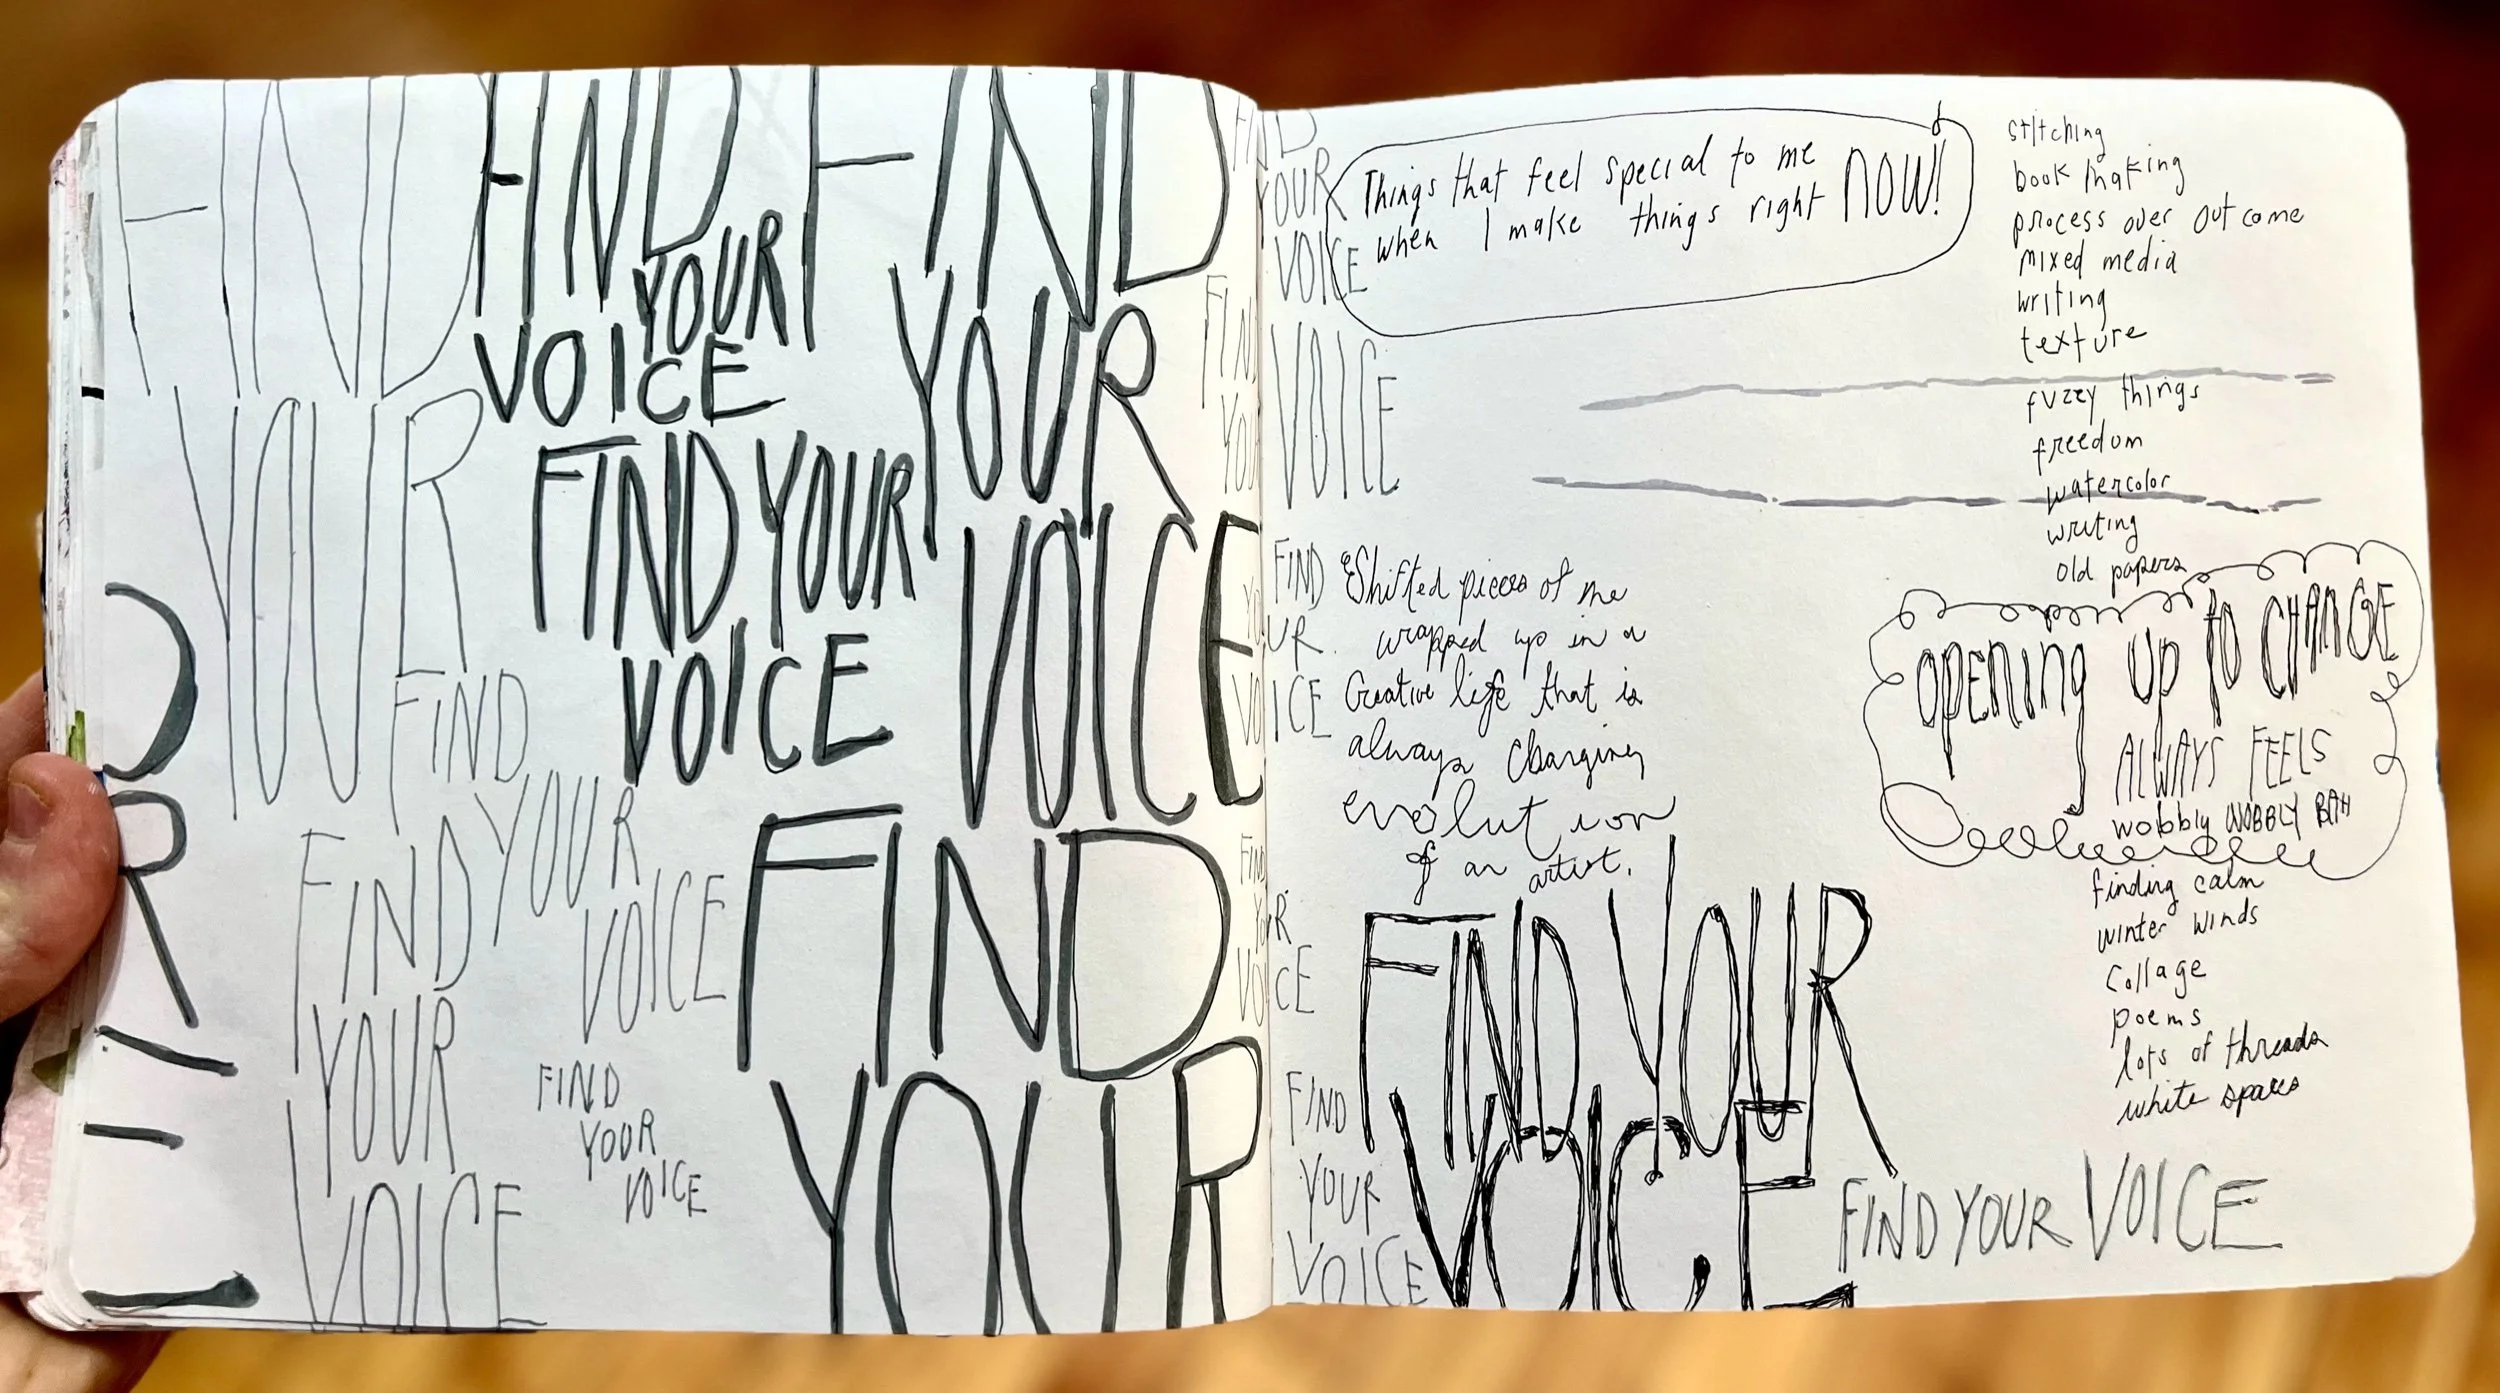 FIND
YOUR
VOICE
FIND
YOUR
VOICE
FIND
YOUR
VOICE
FIND YOUR
VOICE
FIND
YOUR
VOICE
FIND
YOUR
VOICE
FIND
YOUR
FIND
YOUR
VOICE
FIND
YOUR
VOICE
VOICE
FIND
YOU
FIND
YOUR
VOICE
FIND
YOUR
VOICE
FIND
YOUR
VOICE
Things that feel special to me
when I make things right NOW!
stitching
book making
process over outcome
mixed media
writing
texture
fuzzy things
freedom
watercolor
writing
old papers
OPENING UP TO CHANGE
ALWAYS FEELS
wobbly WOBBLY BAH
finding calm
winter winds
collage
poems
lots of threads
white spaces
Shifted pieces of me
wrapped up in a
Creative life that is
always changing
evolution
of an artist.
FIND YOUR
VOICE
FIND YOUR VOICE